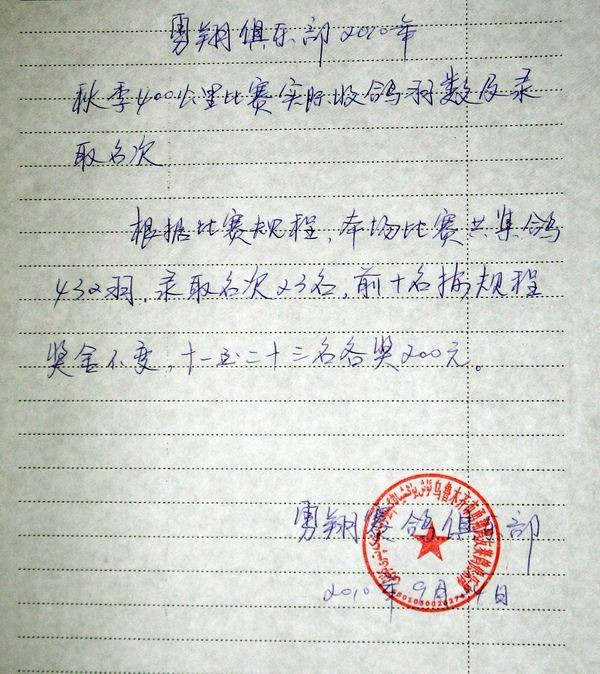 勇翔俱乐部2010年
秋季400公里比赛实际收鸽羽数及录
取名次
根据比赛规程，本场比赛共集鸽
432羽，录取名次23名，前十名按规程
奖金不变，十一至二十三名各奖200元。
勇翔赛鸽俱乐部
2010年9月 4日
乌鲁木齐